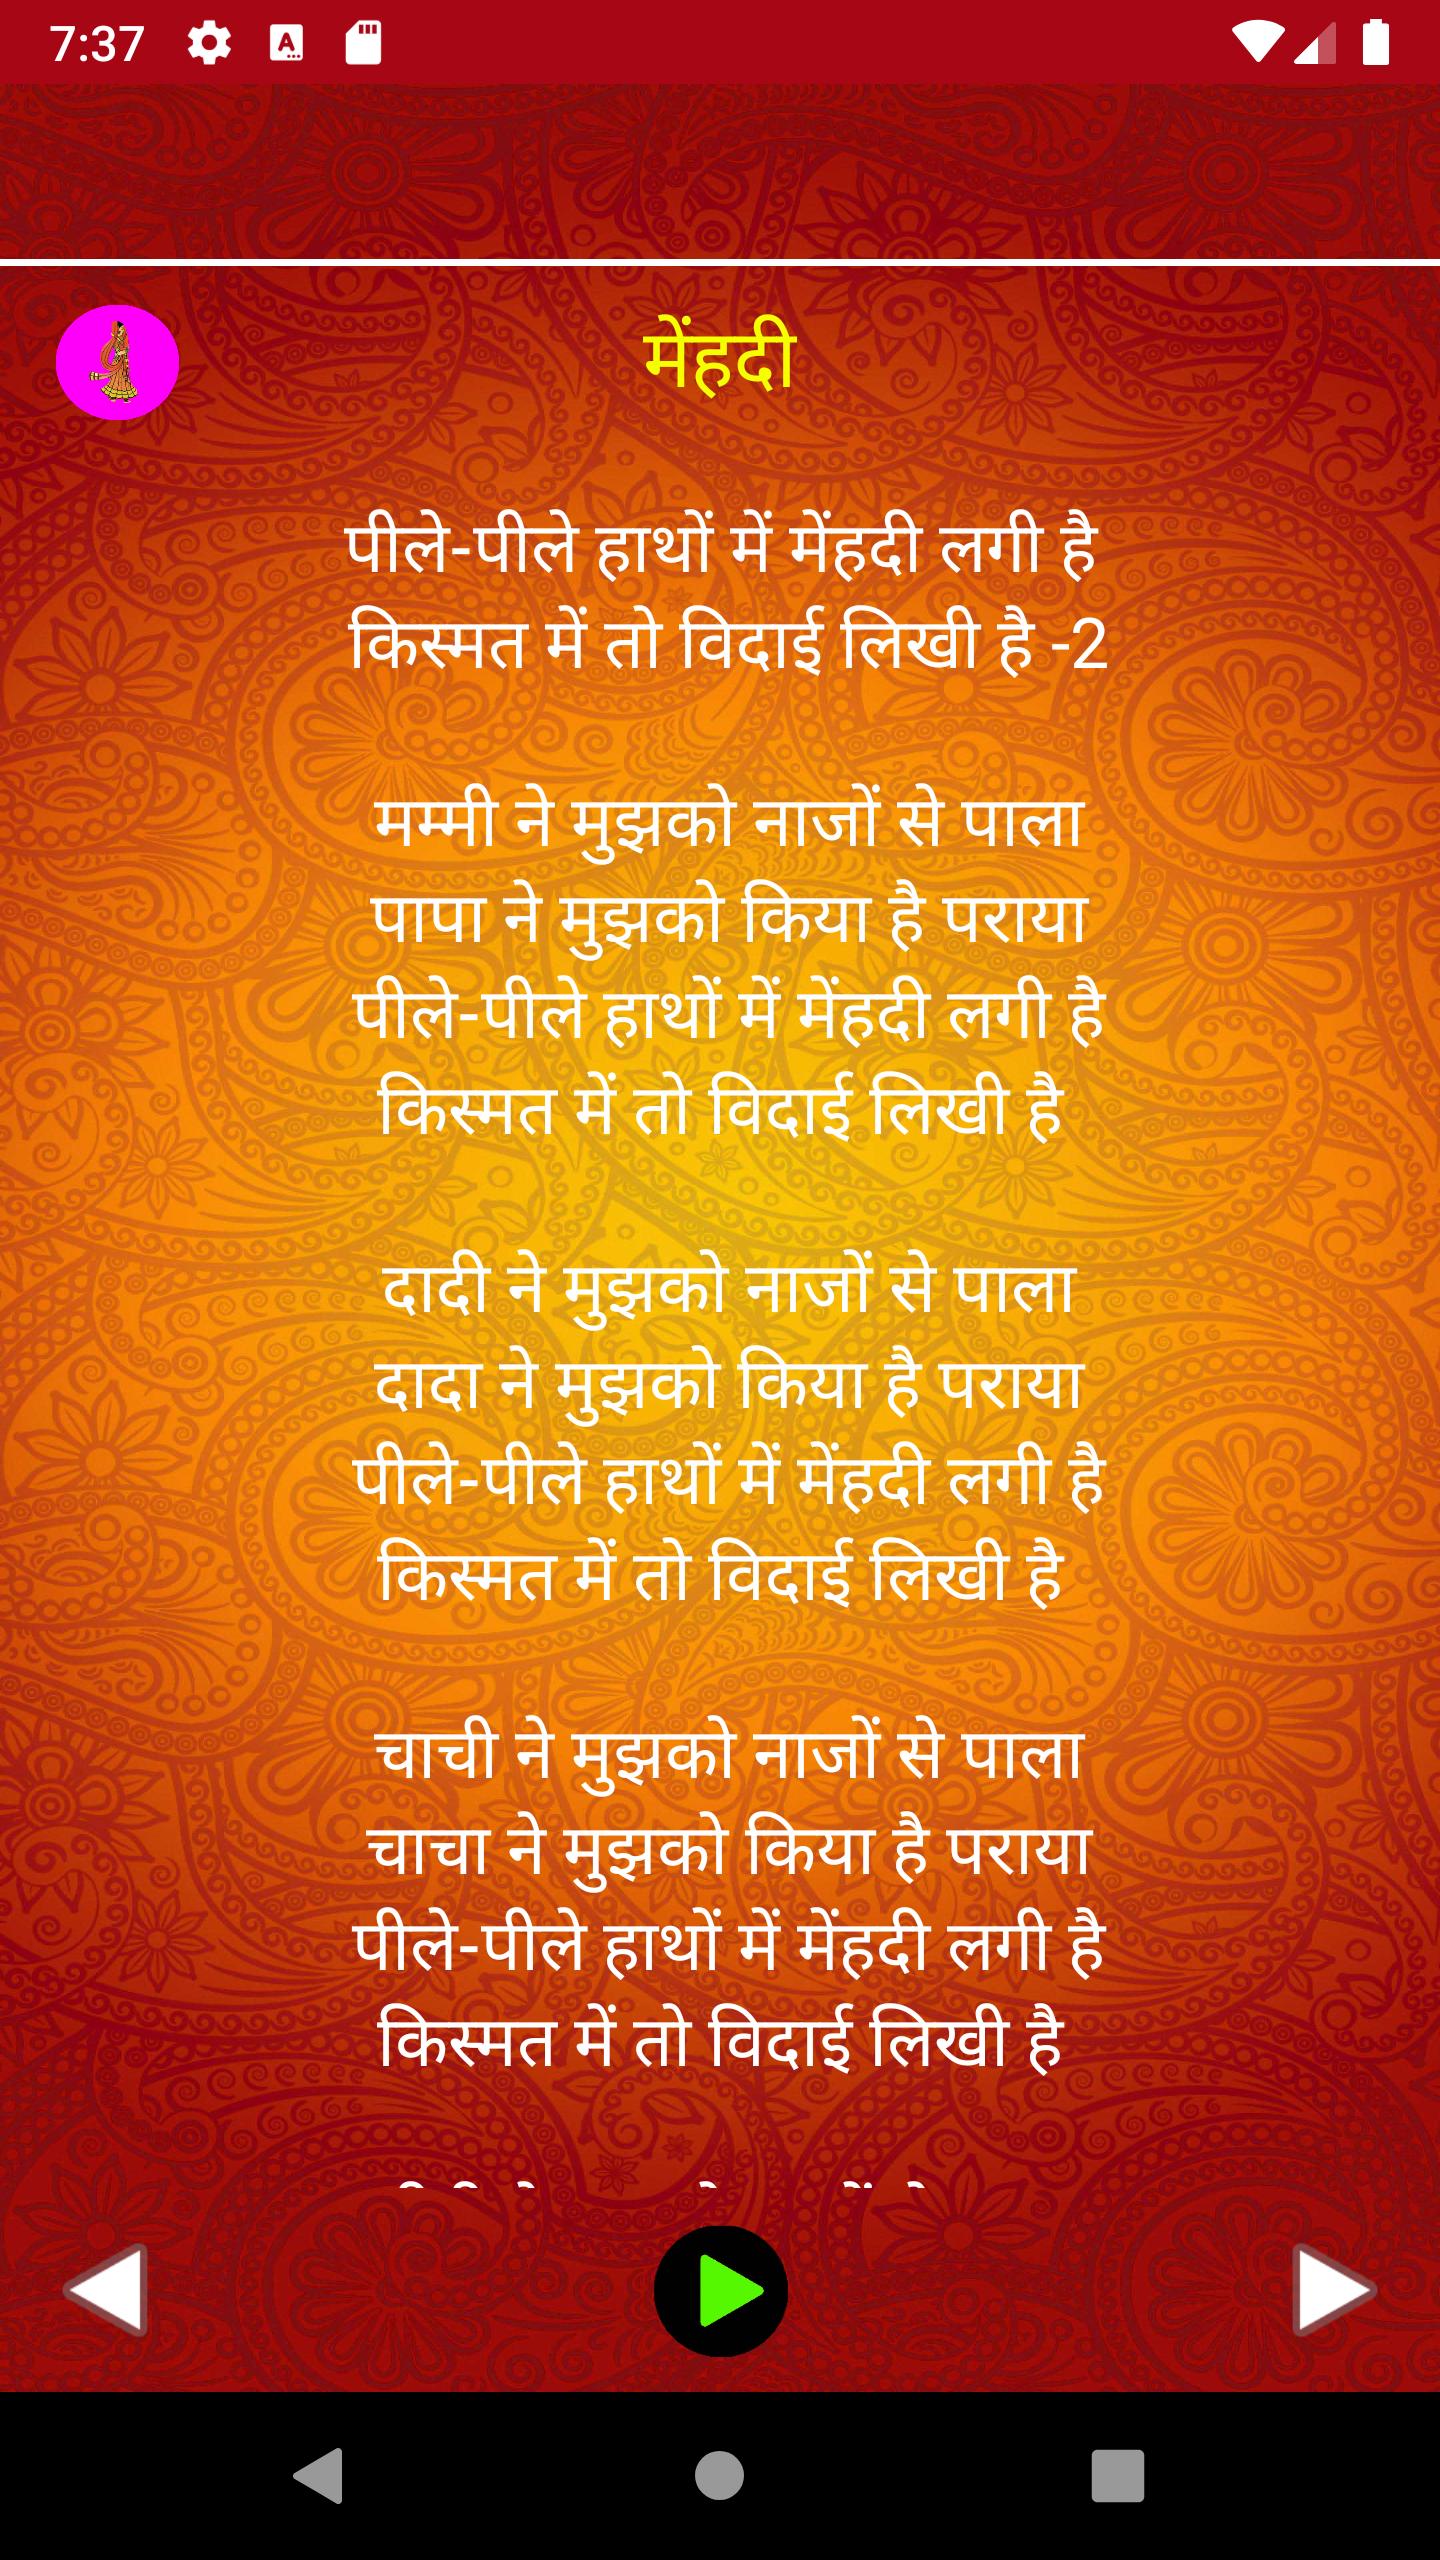 7:37
मेंहदी
पीले-पीले हाथों में मेंहदी लगी है
किस्मत में तो विदाई लिखी है -2
मम्मी ने मुझको नाजों से पाला
पापा ने मुझको किया है पराया
पीले-पीले हाथों में मेंहदी लगी है
किस्मत में तो विदाई लिखी है
दादी ने मुझको नाजों से पाला
दादा ने मुझको किया है पराया
पीले-पीले हाथों में मेंहदी लगी है
किस्मत में तो विदाई लिखी है
चाची ने मुझको नाजों से पाला
चाचा ने मुझको किया है पराया
पीले-पीले हाथों में मेंहदी लगी है
किस्मत में तो विदाई लिखी है